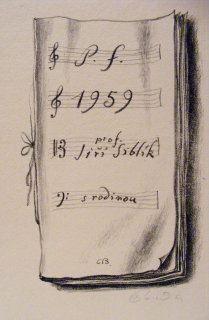 P. f.
1959
prof.
Jiří Siblík
s rodinou